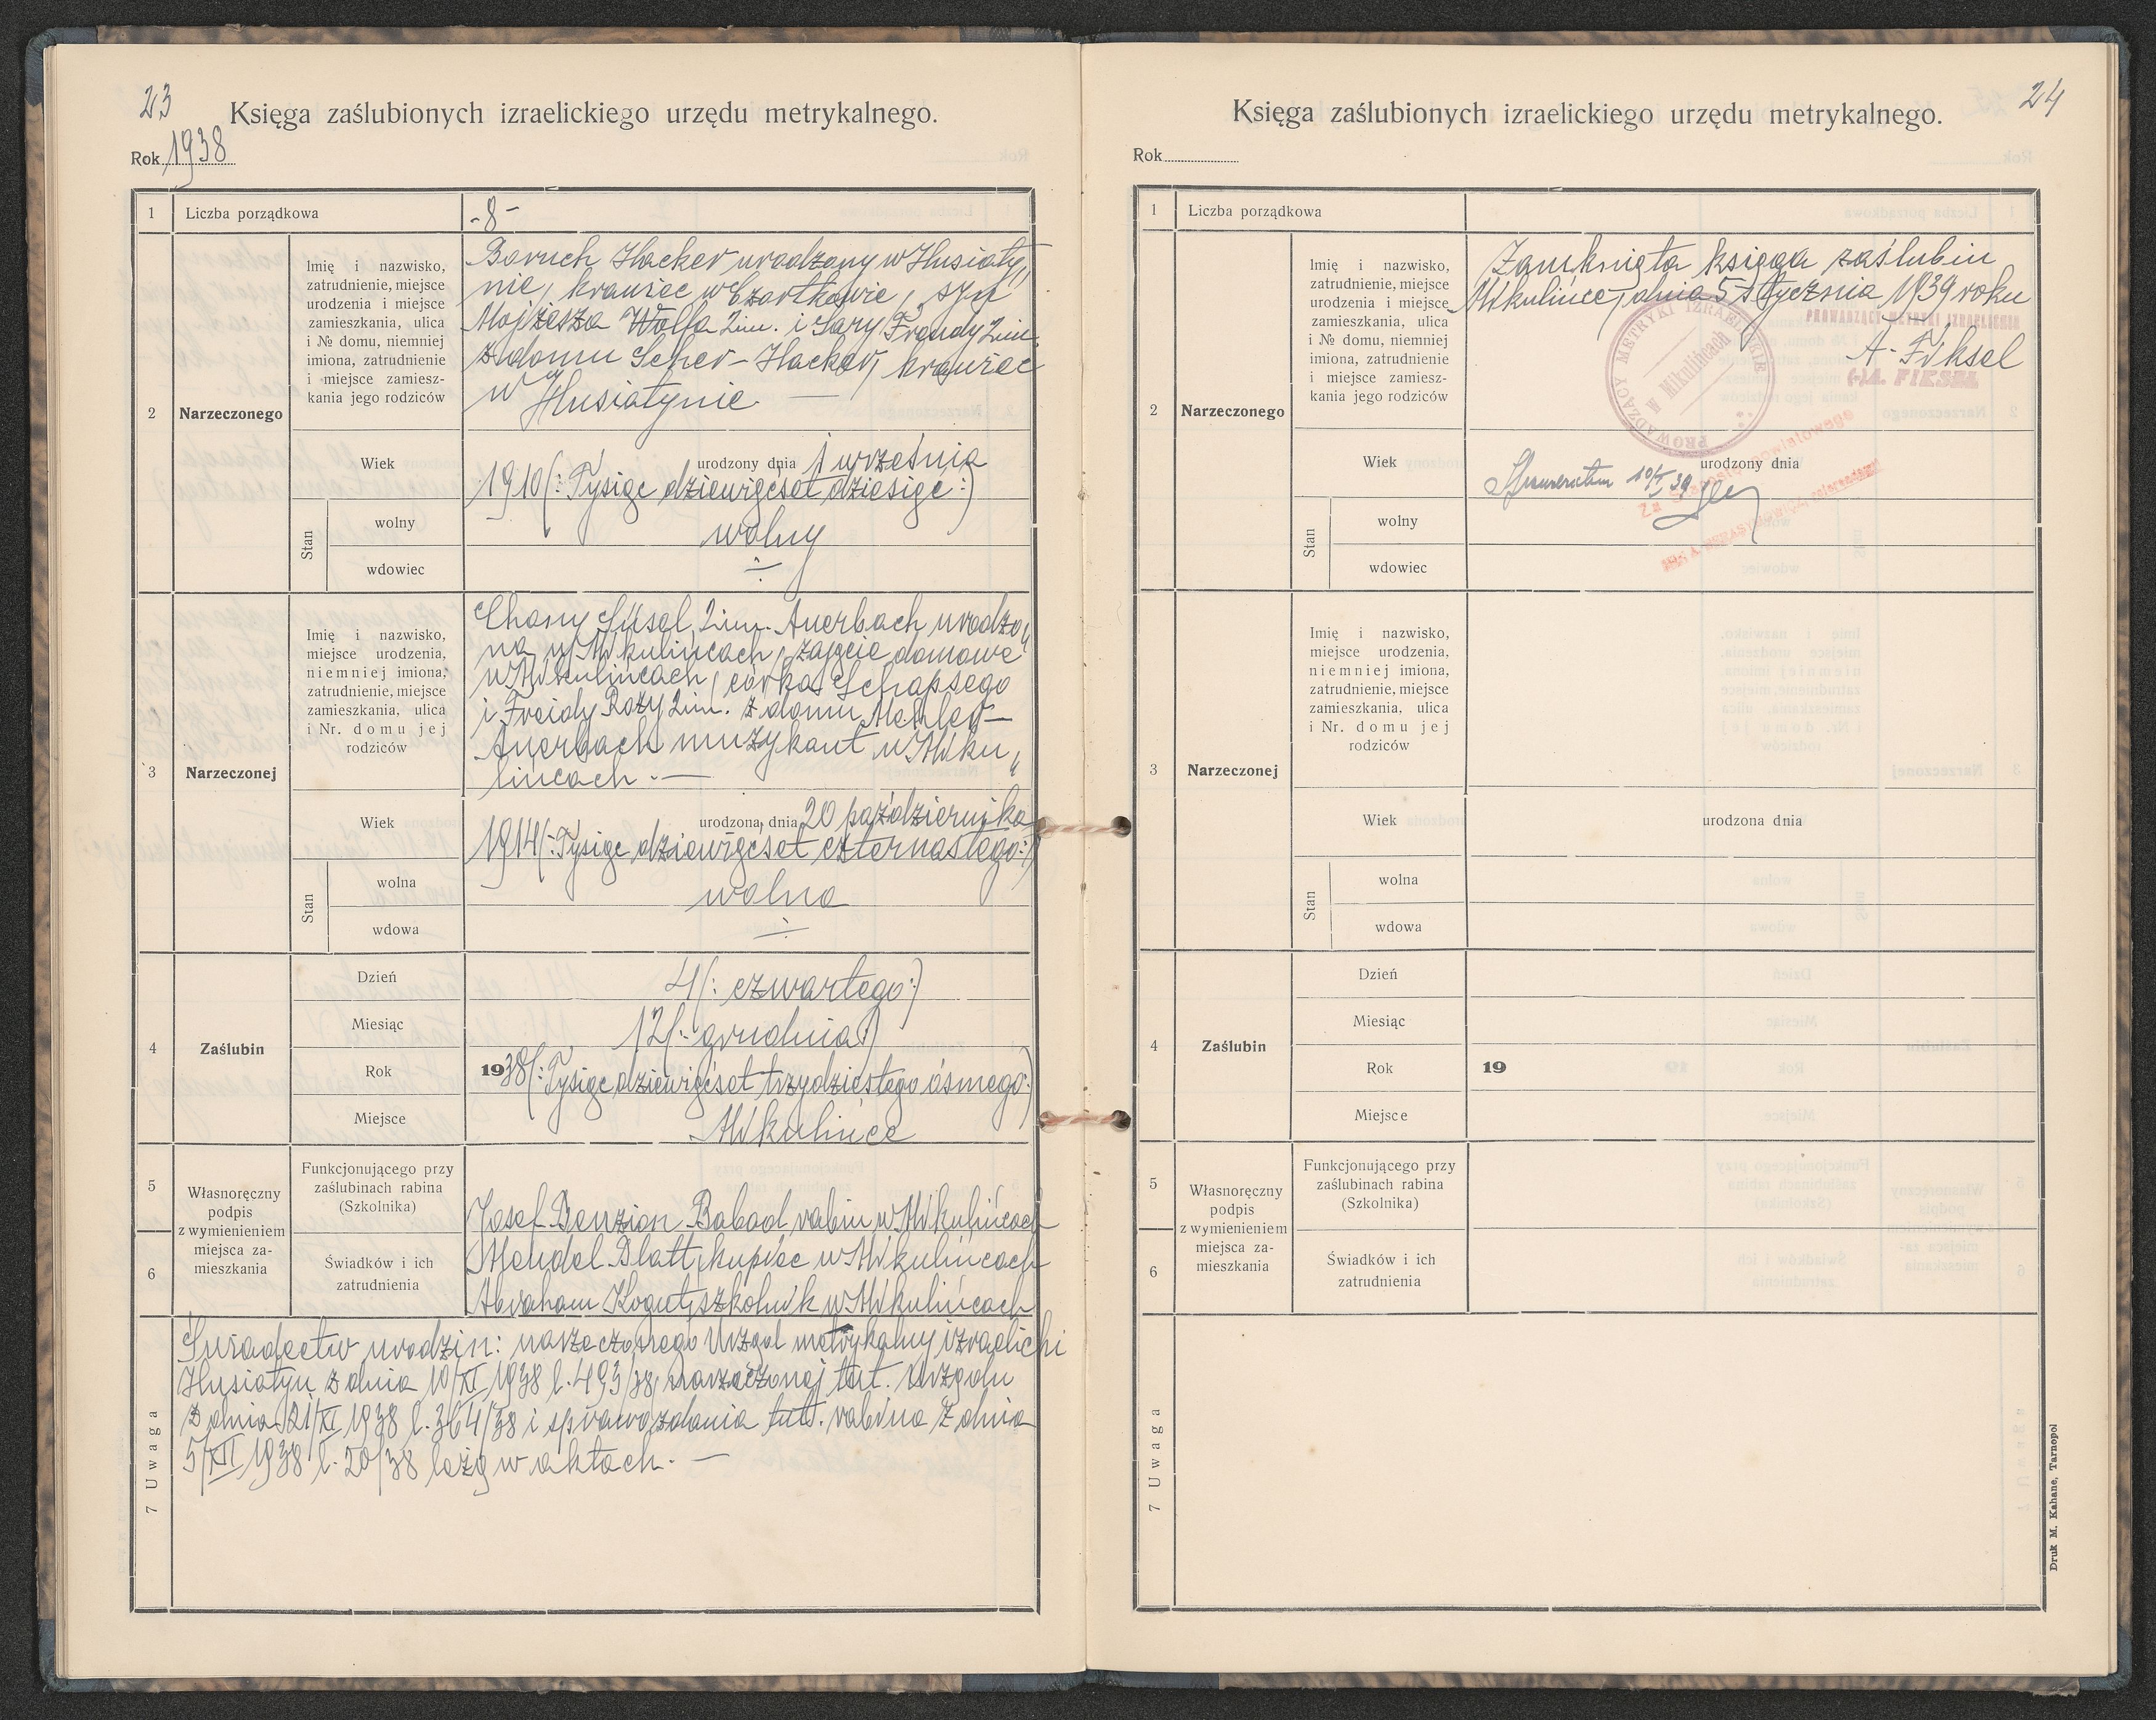 23
Księga zaślubionych izraelickiego urzędu metrykalnego.
Rok 1938
1 Liczba porządkowa -8-
2 Narzeczonego
Imię i nazwisko,
zatrudnienie, miejsce
urodzenia i miejsce
zamieszkania, ulica
i № domu, niemniej
imiona, zatrudnienie
i miejsce zamiesz-
kania jego rodziców
Boruch Hacker urodzony w Husiaty„
nie, krawiec w Czortkowie, syn
Mojżesza Wolfa 2im. i Sary Freudy 2im.
z domu Scher-Hacker, krawiec
w Husiatynie —
Wiek urodzony dnia 1 września
1910 (: Tysiąc dziewięćset dziesięć :)
Stan
wolny wolny
wdowiec
3 Narzeczonej
Imię i nazwisko,
miejsce urodzenia,
niemniej imiona,
zatrudnienie, miejsce
zamieszkania, ulica
i Nr. domu jej
rodziców
Chany Süsel 2im. Auerbach urodzo„
na w Mikulińcach, zajęcie domowe
w Mikulińcach, córka Schapsego
i Freidy Rozy 2im. z domu Mehler-
Auerbach muzykant w Miku„
lińcach. —
Wiek urodzona dnia 20 października
1914 (: Tysiąc dziewięćset czternastego :)
Stan
wolna wolna
wdowa
4 Zaślubin
Dzień 4 (: czwartego :)
Miesiąc 12 (: grudnia :)
Rok 1938 (: Tysiąc dziewięćset trzydziestego ósmego :)
Miejsce Mikulińce
5
6
Własnoręczny
podpis
z wymienieniem
miejsca za-
mieszkania
Funkcjonującego przy
zaślubinach rabina
(Szkolnika)
Josef Benzion Babad rabin w Mikulińcach
Świadków i ich
zatrudnienia
Mendel Blatt, kupiec w Mikulińcach
Abraham Kogut, szkolnik w Mikulińcach
7 Uwaga
Świadectw urodzin: narzeczonego Urząd metrykalny izraelicki
Husiatyn z dnia 10/XI 1938 l. 493/38, narzeczonej tut. Urzędu
z dnia 21/XI 1938 l. 364/38 i sprawozdania tut. rabina z dnia
5/XII 1938 l. 20/38 leżą w aktach. —
24
Księga zaślubionych izraelickiego urzędu metrykalnego.
Rok
1 Liczba porządkowa
2 Narzeczonego
Imię i nazwisko,
zatrudnienie, miejsce
urodzenia i miejsce
zamieszkania, ulica
i № domu, niemniej
imiona, zatrudnienie
i miejsce zamiesz-
kania jego rodziców
Zamknięta księga zaślubin
Mikulińce, dnia 5 stycznia 1939 roku
PROWADZĄCY METRYKI IZRAELSKIE
PROWADZĄCY METRYKI IZRAELICKIE
w Mikulińcach
A. Fiksel
(-) A. FIKSEL
Wiek urodzony dnia
10/I 39
Za Starostę powiatowego
Stan
wolny
wdowiec
3 Narzeczonej
Imię i nazwisko,
miejsce urodzenia,
niemniej imiona,
zatrudnienie, miejsce
zamieszkania, ulica
i Nr. domu jej
rodziców
Wiek urodzona dnia
Stan
wolna
wdowa
4 Zaślubin
Dzień
Miesiąc
Rok 19
Miejsce
5
6
Własnoręczny
podpis
z wymienieniem
miejsca za-
mieszkania
Funkcjonującego przy
zaślubinach rabina
(Szkolnika)
Świadków i ich
zatrudnienia
7 Uwaga
Druk M. Kahane, Tarnopol